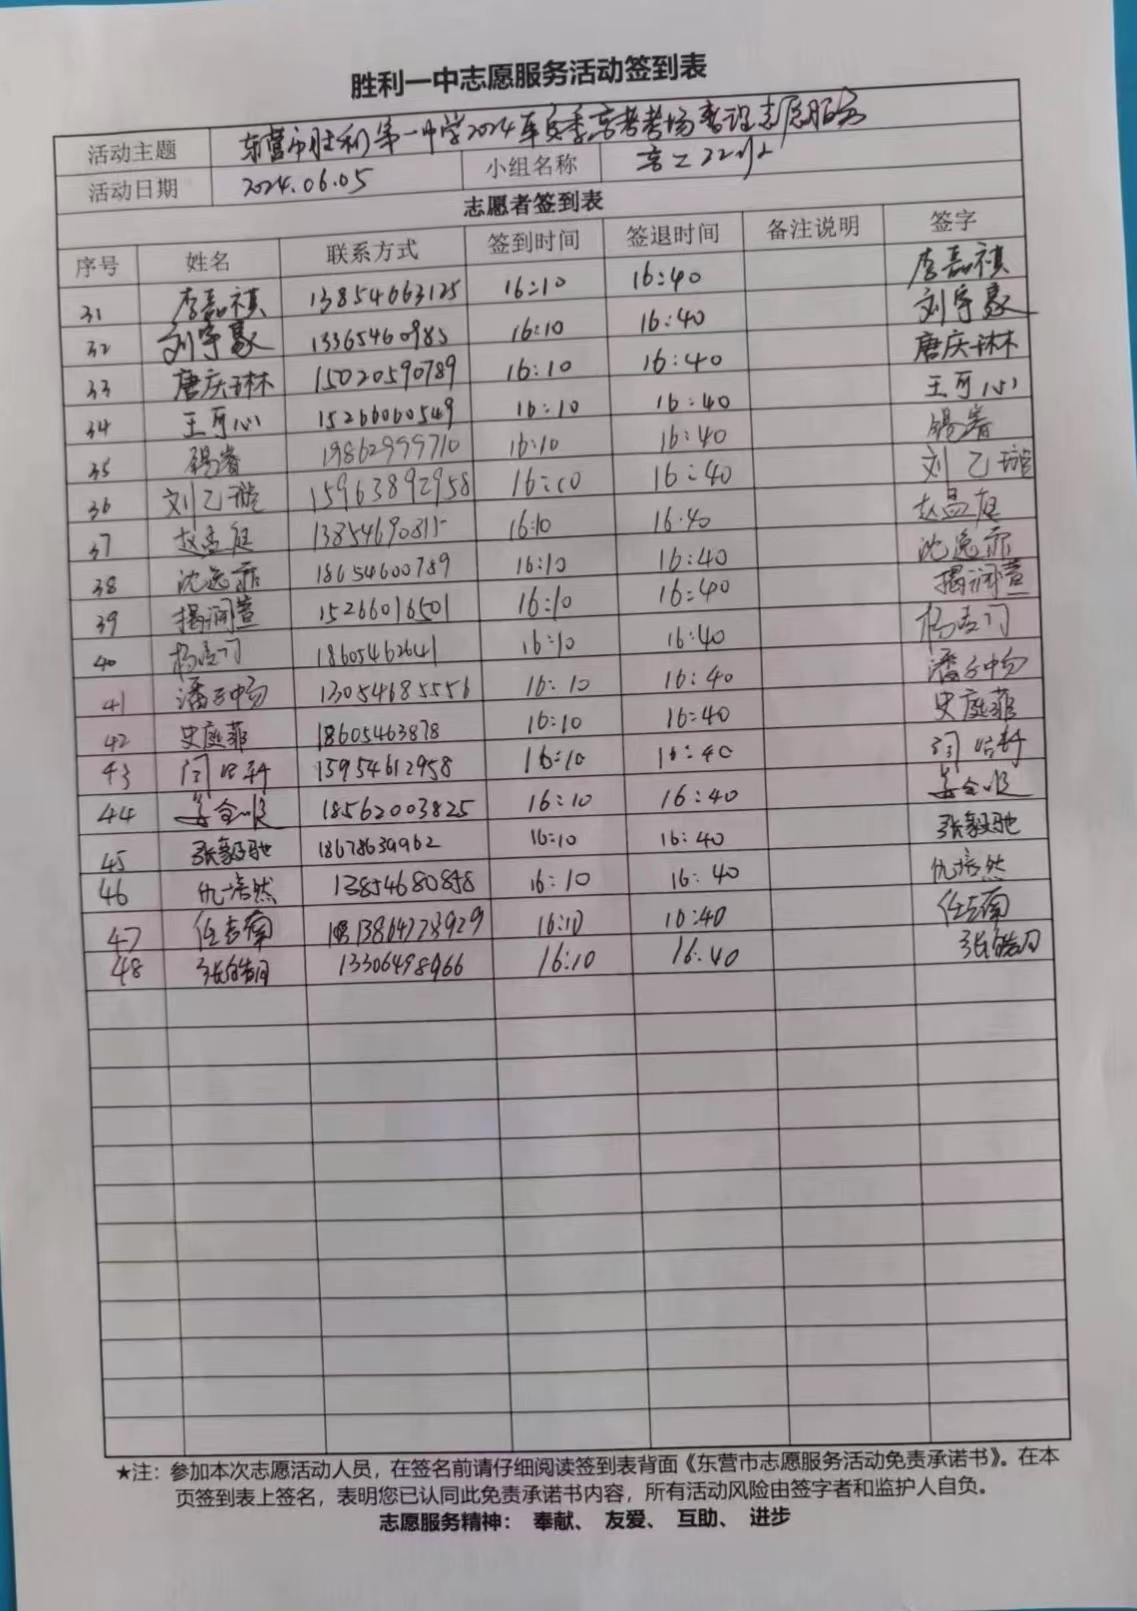 胜利一中志愿服务活动签到表
活动主题 东营市胜利第一中学2024年夏季高考考场整理志愿服务
活动日期 2024.06.05 小组名称 高二22班
志愿者签到表
序号 姓名 联系方式 签到时间 签退时间 备注说明 签字
31 李嘉祺 13854663125 16:10 16:40 李嘉祺
32 刘宇豪 13365460985 16:10 16:40 刘宇豪
33 唐庆琳 15020590789 16:10 16:40 唐庆琳
34 王可心 15266060549 16:10 16:40 王可心
35 19862999710 16:10 16:40
36 刘乙璇 15963892958 16:10 16:40 刘乙璇
37 赵孟庭 13854690815 16:10 16:40 赵孟庭
38 沈逸菲 18654600789 16:10 16:40 沈逸菲
39 揭润萱 15266016501 16:10 16:40 揭润萱
40 18605462641 16:10 16:40
41 潘 13054685556 16:10 16:40 潘
42 史庭菲 18605463878 16:10 16:40 史庭菲
43 15954612958 16:10 16:40
44 姜 18562003825 16:10 16:40 姜
45 张毅驰 18678639962 16:10 16:40 张毅驰
46 仇培然 13854680858 16:10 16:40 仇培然
47 任 13864723929 16:10 16:40 任
48 张皓月 13306498966 16:10 16:40 张皓月
★注：参加本次志愿活动人员，在签名前请仔细阅读签到表背面《东营市志愿服务活动免责承诺书》。在本
页签到表上签名，表明您已认同此免责承诺书内容，所有活动风险由签字者和监护人自负。
志愿服务精神： 奉献、 友爱、 互助、 进步